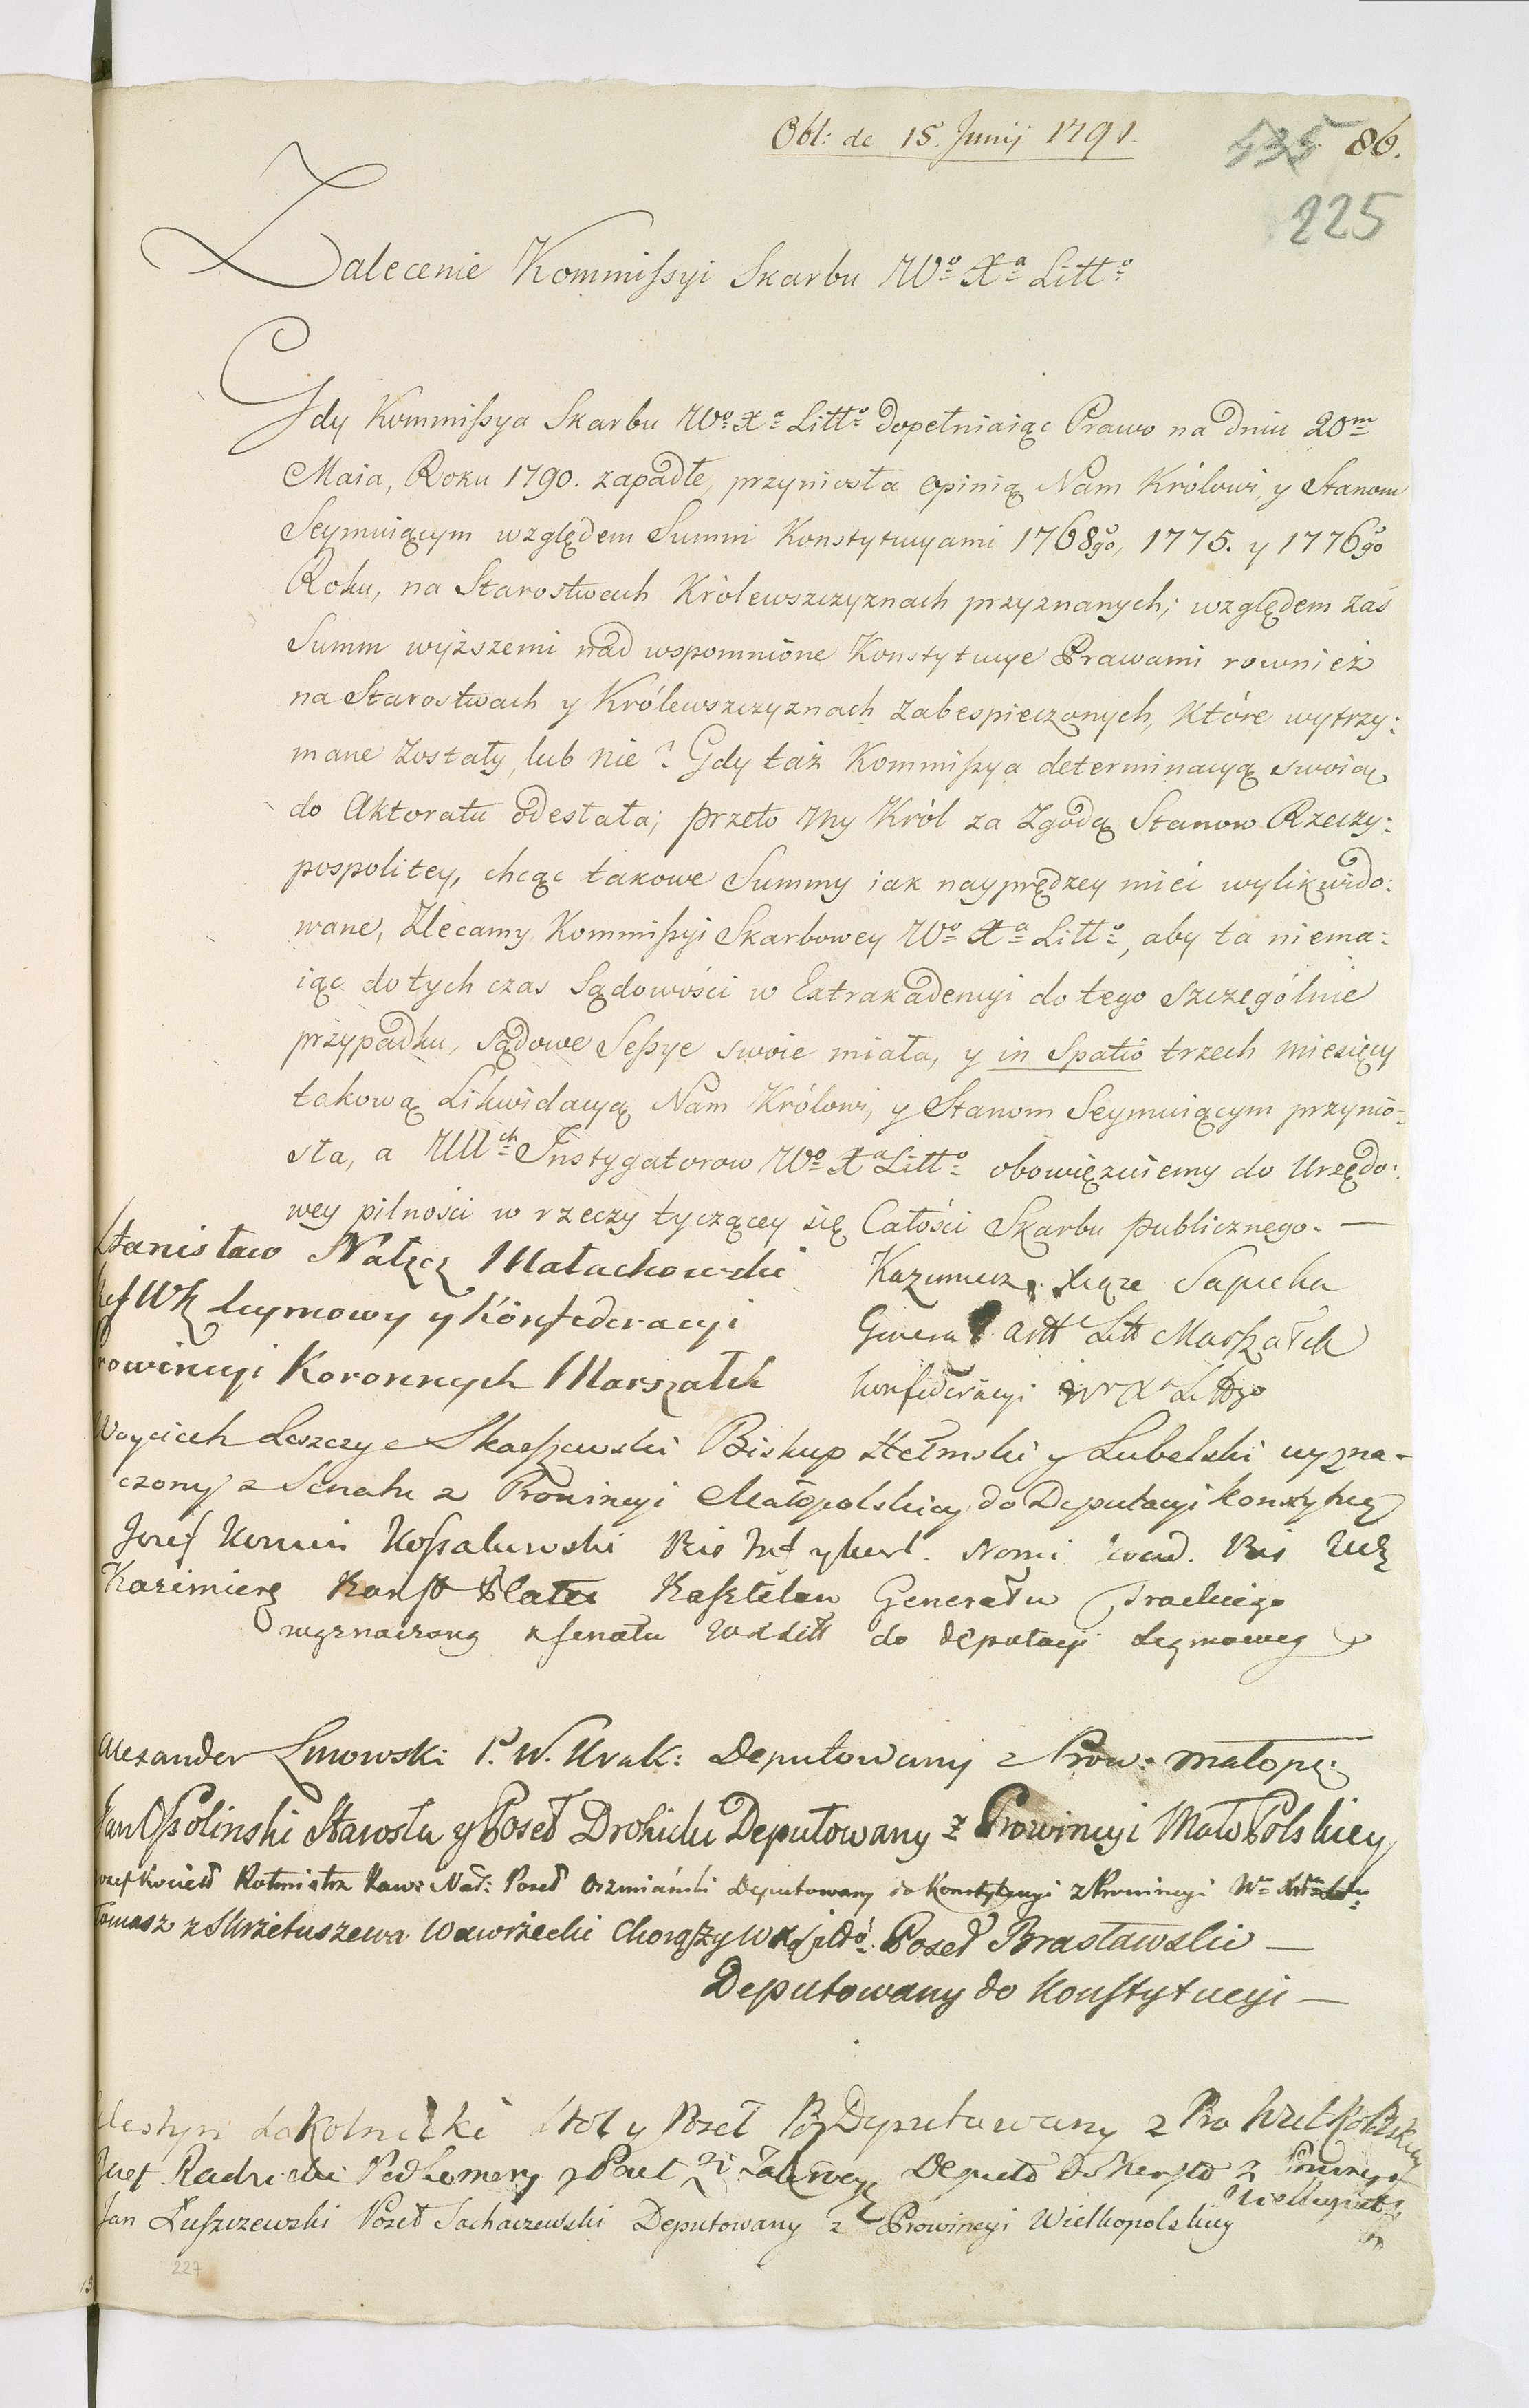 Obl: de 15. Junij 1791.
535 86.
225
Zalecenie Kommissyi Skarbu Wo Xa Litto
Gdy Kommissya Skarbu Wo Xa Litto dopełniaiąc Prawo na dniu 20m
Maia, Roku 1790. zapadłe, przyniosła opinią Nam Królowi, y Stanom
Seymuiącym względem Summ Konstytucyami 1768go, 1775. y 1776go
Roku, na Starostwach Królewszczyznach przyznanych; względem zaś
Summ wyższemi nad wspomnione Konstytucye Prawami rownież
na Starostwach y Królewszczyznach zabespieczonych, które wytrzy:
mane zostały, lub nie? Gdy taż Kommissya determinacyą swoią
do Aktoratu odesłała; przeto My Król za Zgodą Stanow Rzeczy:
pospolitey, chcąc takowe Summy iak nayprędzey mieć wylikwido:
wane, Zlecamy Kommissyi Skarbowey Wo Xa Litto, aby ta niema:
iąc dotych czas Sądowości w Extrakadencyi do tego szczególnie
przypadku, sądowe Sessye swoie miała, y in Spatio trzech miesięcy
takową Likwidacyą Nam Królowi, y Stanom Seymuiącym przynio-
sła, a WWch Instygatorow Wo Xa Litto obowięzuiemy do Urzędo:
wey pilności w rzeczy tyczącey się Całości Skarbu publicznego. —
Stanisław Nałęcz Małachowski
Ref WK Seymowy y Konfederacyi
Prowincyi Koronnych Marszałek
Kazimierz Xiąże Sapieha
Generał Artt Litt Marszałek
Konfederacyi Wo Xa Littgo
Woyciech Leszczyc Skarszewski Biskup Hełmski y Lubelski wyzna-
czony z Senatu z Prowincyi Małopolskiey do Deputacyi Konstytucy
Jozef Korwin Kossakowski Bis Inf y Kurl. Nomi Koad. Bis Wil
Kazimierz Konst Plater Kasztelan Generału Trockiego
wyznaczony z Senatu WXLitt do deputacyi Seymowey
Alexander Linowski P. W. Krak: Deputowany z Prow: Małopo:
Jan Ossolinski Starosta y Poseł Drohicki Deputowany z Prowincyi MałoPolskiey
Jozef Kociełł Rotmistrz Kaw: Nad: Poseł Oszmiański Deputowany do Konstytucyi z Prowincyi
Tomasz z Skrzetuszewa Wawrzecki Chorąży Poseł Brasławski —
Deputowany do Konstytucyi —
Celestyn Sokolnicki Poseł Poz Deputowany z Pro Wielkopolskiey
Jozef Radzicki Podkomorzy y Poseł Zi Zakroczy Deputo do Konsto z Prowincyi
Wielkopols
Jan Łuszczewski Poseł Sochaczewski Deputowany z Prowincyi Wielkopolskiey
227